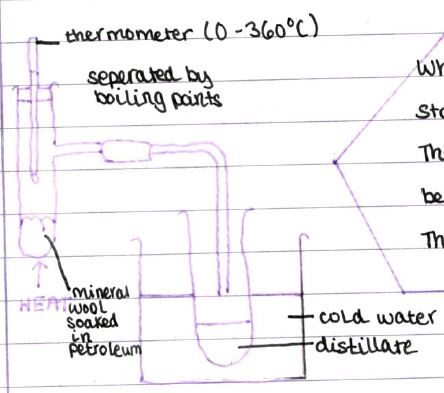 thermometer (0-360°C)
seperated by
boiling points
Wh
Sta
Th
be
Th
HEAT
mineral
wool
soaked
in
petroleum
cold water
distillate